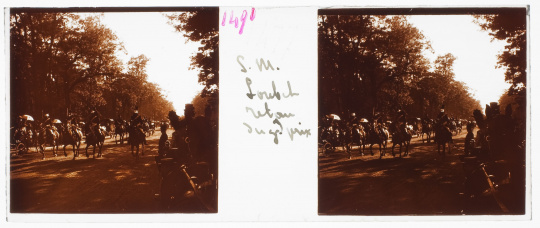 1491
S. M.
Loubet
retour
du gd prix